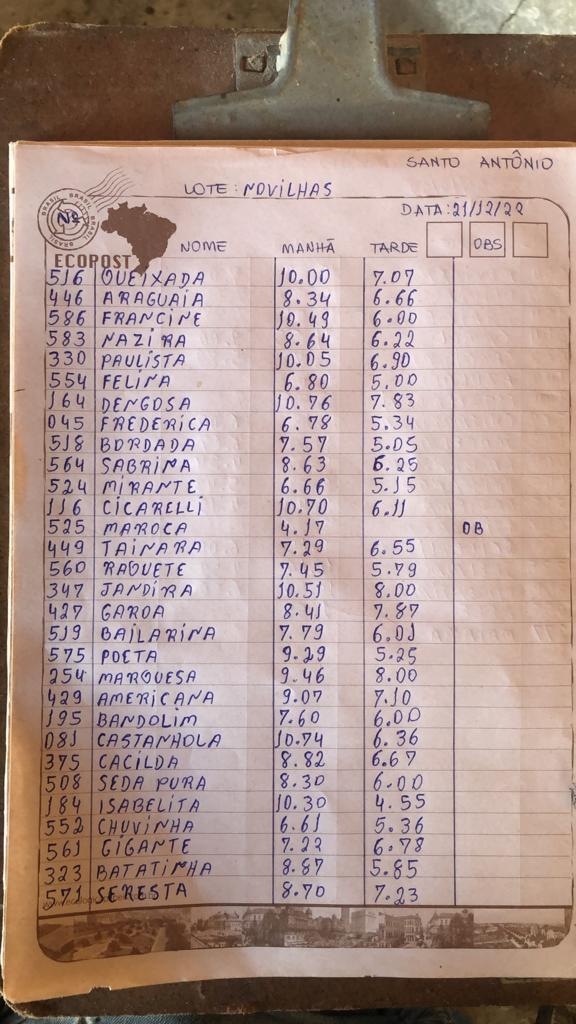 SANTO ANTÔNIO
LOTE: NOVILHAS
DATA: 21/12/22
BRASIL BRASIL BRASIL
Nº NOME MANHÃ TARDE OBS
ECOPOST
516 QUEIXADA 10.00 7.07
446 ARAGUAIA 8.34 6.66
586 FRANCINE 10.49 6.00
583 NAZIRA 8.64 6.22
330 PAULISTA 10.05 6.90
554 FELINA 6.80 5.00
164 DENGOSA 10.76 7.83
045 FREDERICA 6.78 5.34
518 BORDADA 7.57 5.05
564 SABRINA 8.63 6.25
524 MIRANTE 6.66 5.15
116 CICARELLI 10.70 6.11
525 MAROCA 4.17 DB
449 TAINARA 7.29 6.55
560 RAQUETE 7.45 5.79
347 JANDIRA 10.51 8.00
427 GAROA 8.41 7.87
519 BAILARINA 7.79 6.01
575 POETA 9.29 5.25
254 MARQUESA 9.46 8.00
429 AMERICANA 9.07 7.10
195 BANDOLIM 7.60 6.00
081 CASTANHOLA 10.74 6.36
375 CACILDA 8.82 6.67
508 SEDA PURA 8.30 6.00
184 ISABELITA 10.30 4.55
552 CHUVINHA 6.61 5.36
561 GIGANTE 7.22 6.78
323 BATATINHA 8.87 5.85
571 SERESTA 8.70 7.23